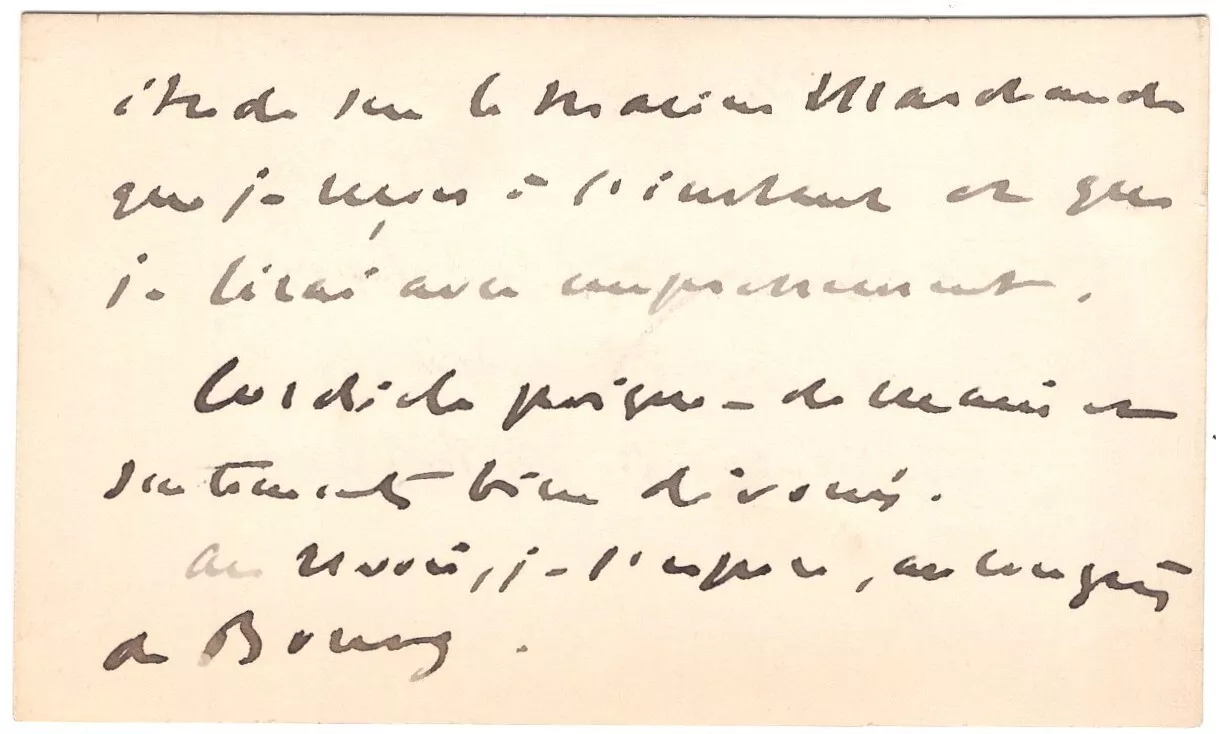 étude sur la Marine Marchande
que je reçois à l'instant et que
je lirai avec empressement.
Cordiale poignée de main et
sentiments bien dévoués.
Au revoir, je l'espère, au congrès
de Bourg.